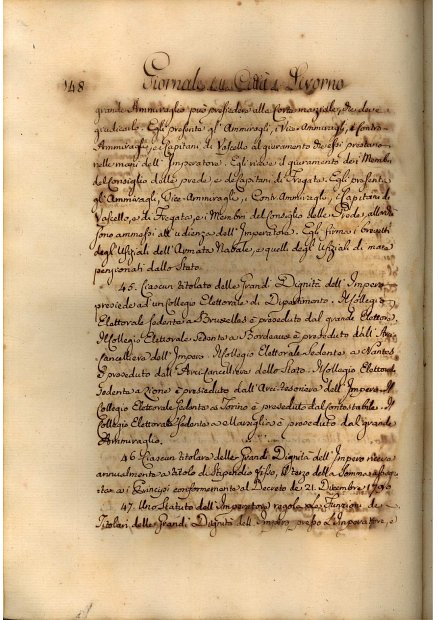 148 Giornale della Città di Livorno
grande Ammiraglio può presiedere alla Corte marziale, che deve
giudicarlo. Egli presenta gl'Ammiragli, i Vice-Ammiragli, i Contro-
Ammiragli, e i Capitani di Vascello al giuramento che essi prestano
nelle mani dell'Imperatore. Egli riceve il giuramento dei Membri
del Consiglio delle prede, e dei Capitani di Fregata. Egli presenta
gl'Ammiragli, Vice-Ammiragli, i Contr'Ammiragli, i Capitani di
Vascello, e di Fregata, e i Membri del Consiglio delle Prede, allorchè
sono ammessi all'udienza dell'Imperatore. Egli firma i brevetti
degl'Ufiziali dell'Armata Navale, e quelli degl'Ufiziali di mare
pensionati dallo Stato.
45. Ciascun titolato delle Grandi Dignità dell'Impero
presiede ad un Collegio Elettorale di Dipartimento. Il Collegio
Elettorale sedente a Bruxelles è preseduto dal grande Elettore.
Il Collegio Elettorale sedente a Bordeaux è preseduto dall'Ar-
cancelliere dell'Impero. Il Collegio Elettorale sedente a Nantes
è preseduto dall'Arcicancelliere dello Stato. Il Collegio Elettorale
sedente a Lione è presieduto dall'Arci-Tesoriere dell'Impero. Il
Collegio Elettorale sedente a Torino è preseduto dal contestabile. Il
Collegio Elettorale sedente a Marsiglia è preseduto dal grande
Ammiraglio.
46. Ciascun titolare delle Grandi Dignità dell'Impero riceve
annualmente a titolo di Stipendio fisso, il terzo della somma
ai Principi conformemente al Decreto de' 21. Dicembre 1790
47. Uno Statuto dell'Imperatore regola le Funzioni de'
Titolari delle Grandi Dignità dell'Impero presso l'Imperatore, e